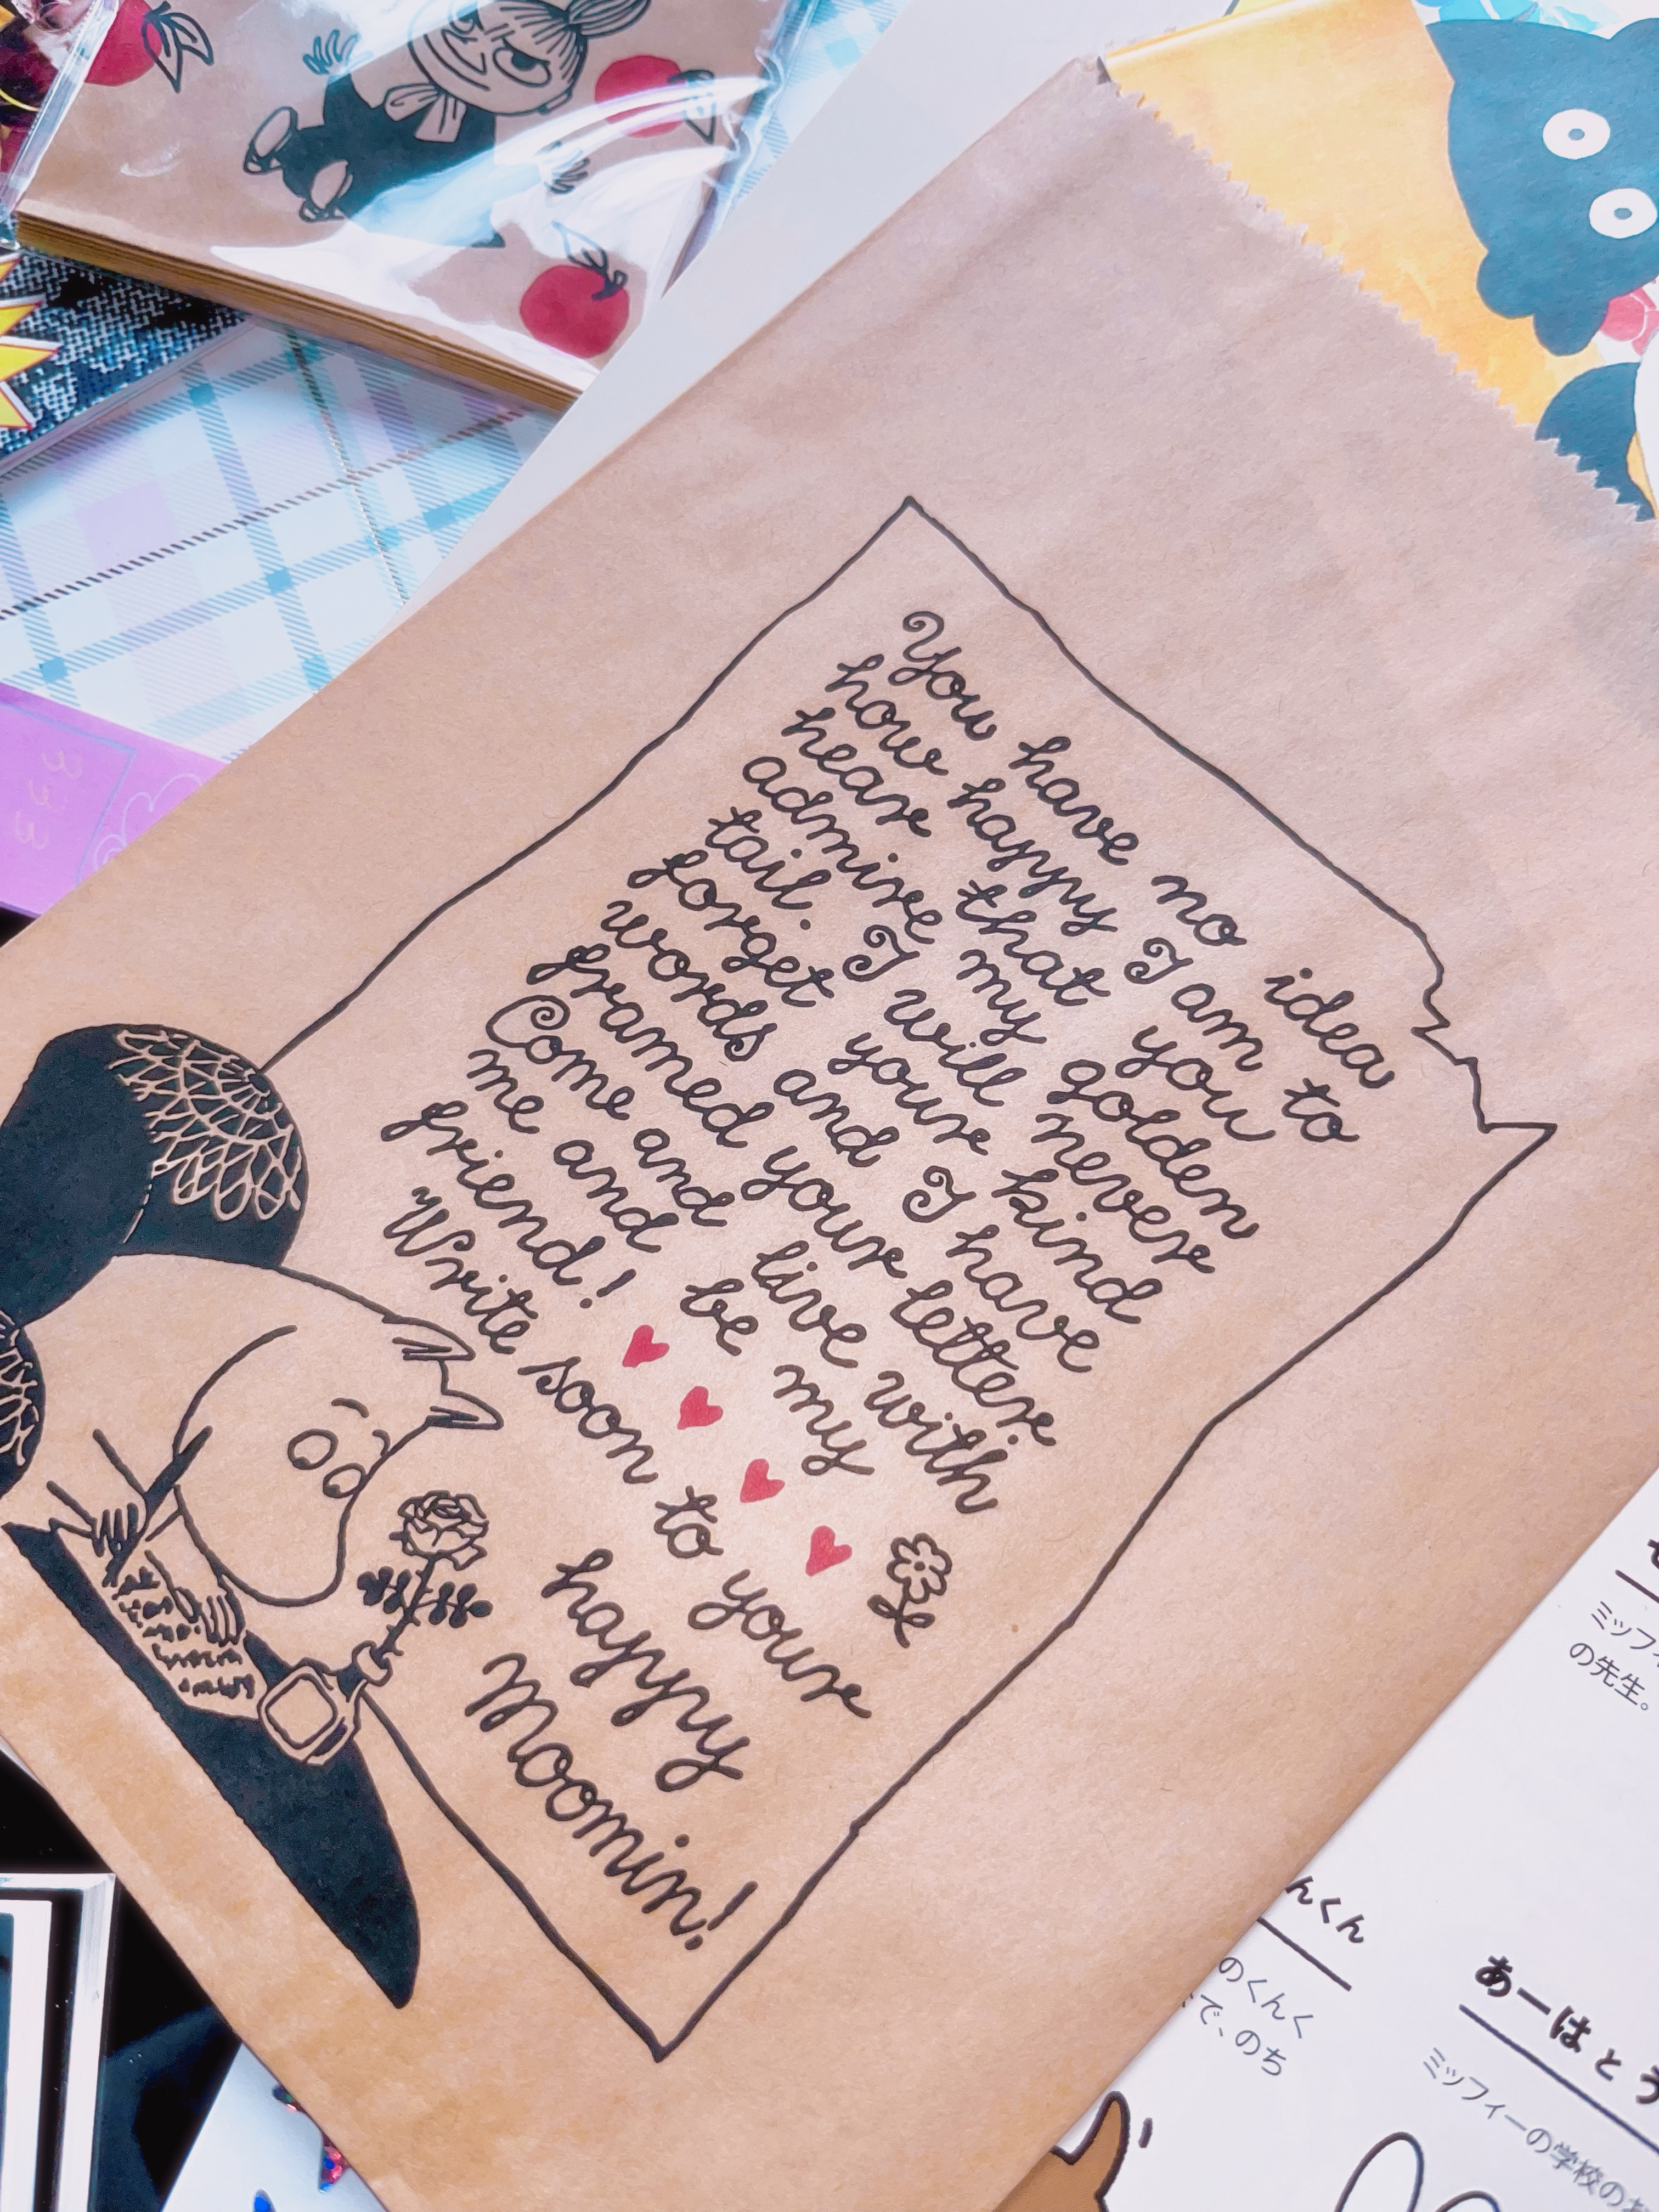 You have no idea
how happy I am to
hear that you
admire my golden
tail. I will never
forget your kind
words and I have
framed your letter.
Come and live with
me and be my
friend!
Write soon to your
happy
Moomin!
333
ミッフ
の先生。
んくん
のくんく
で、のち
あーはとう
ミッフィーの学校のお